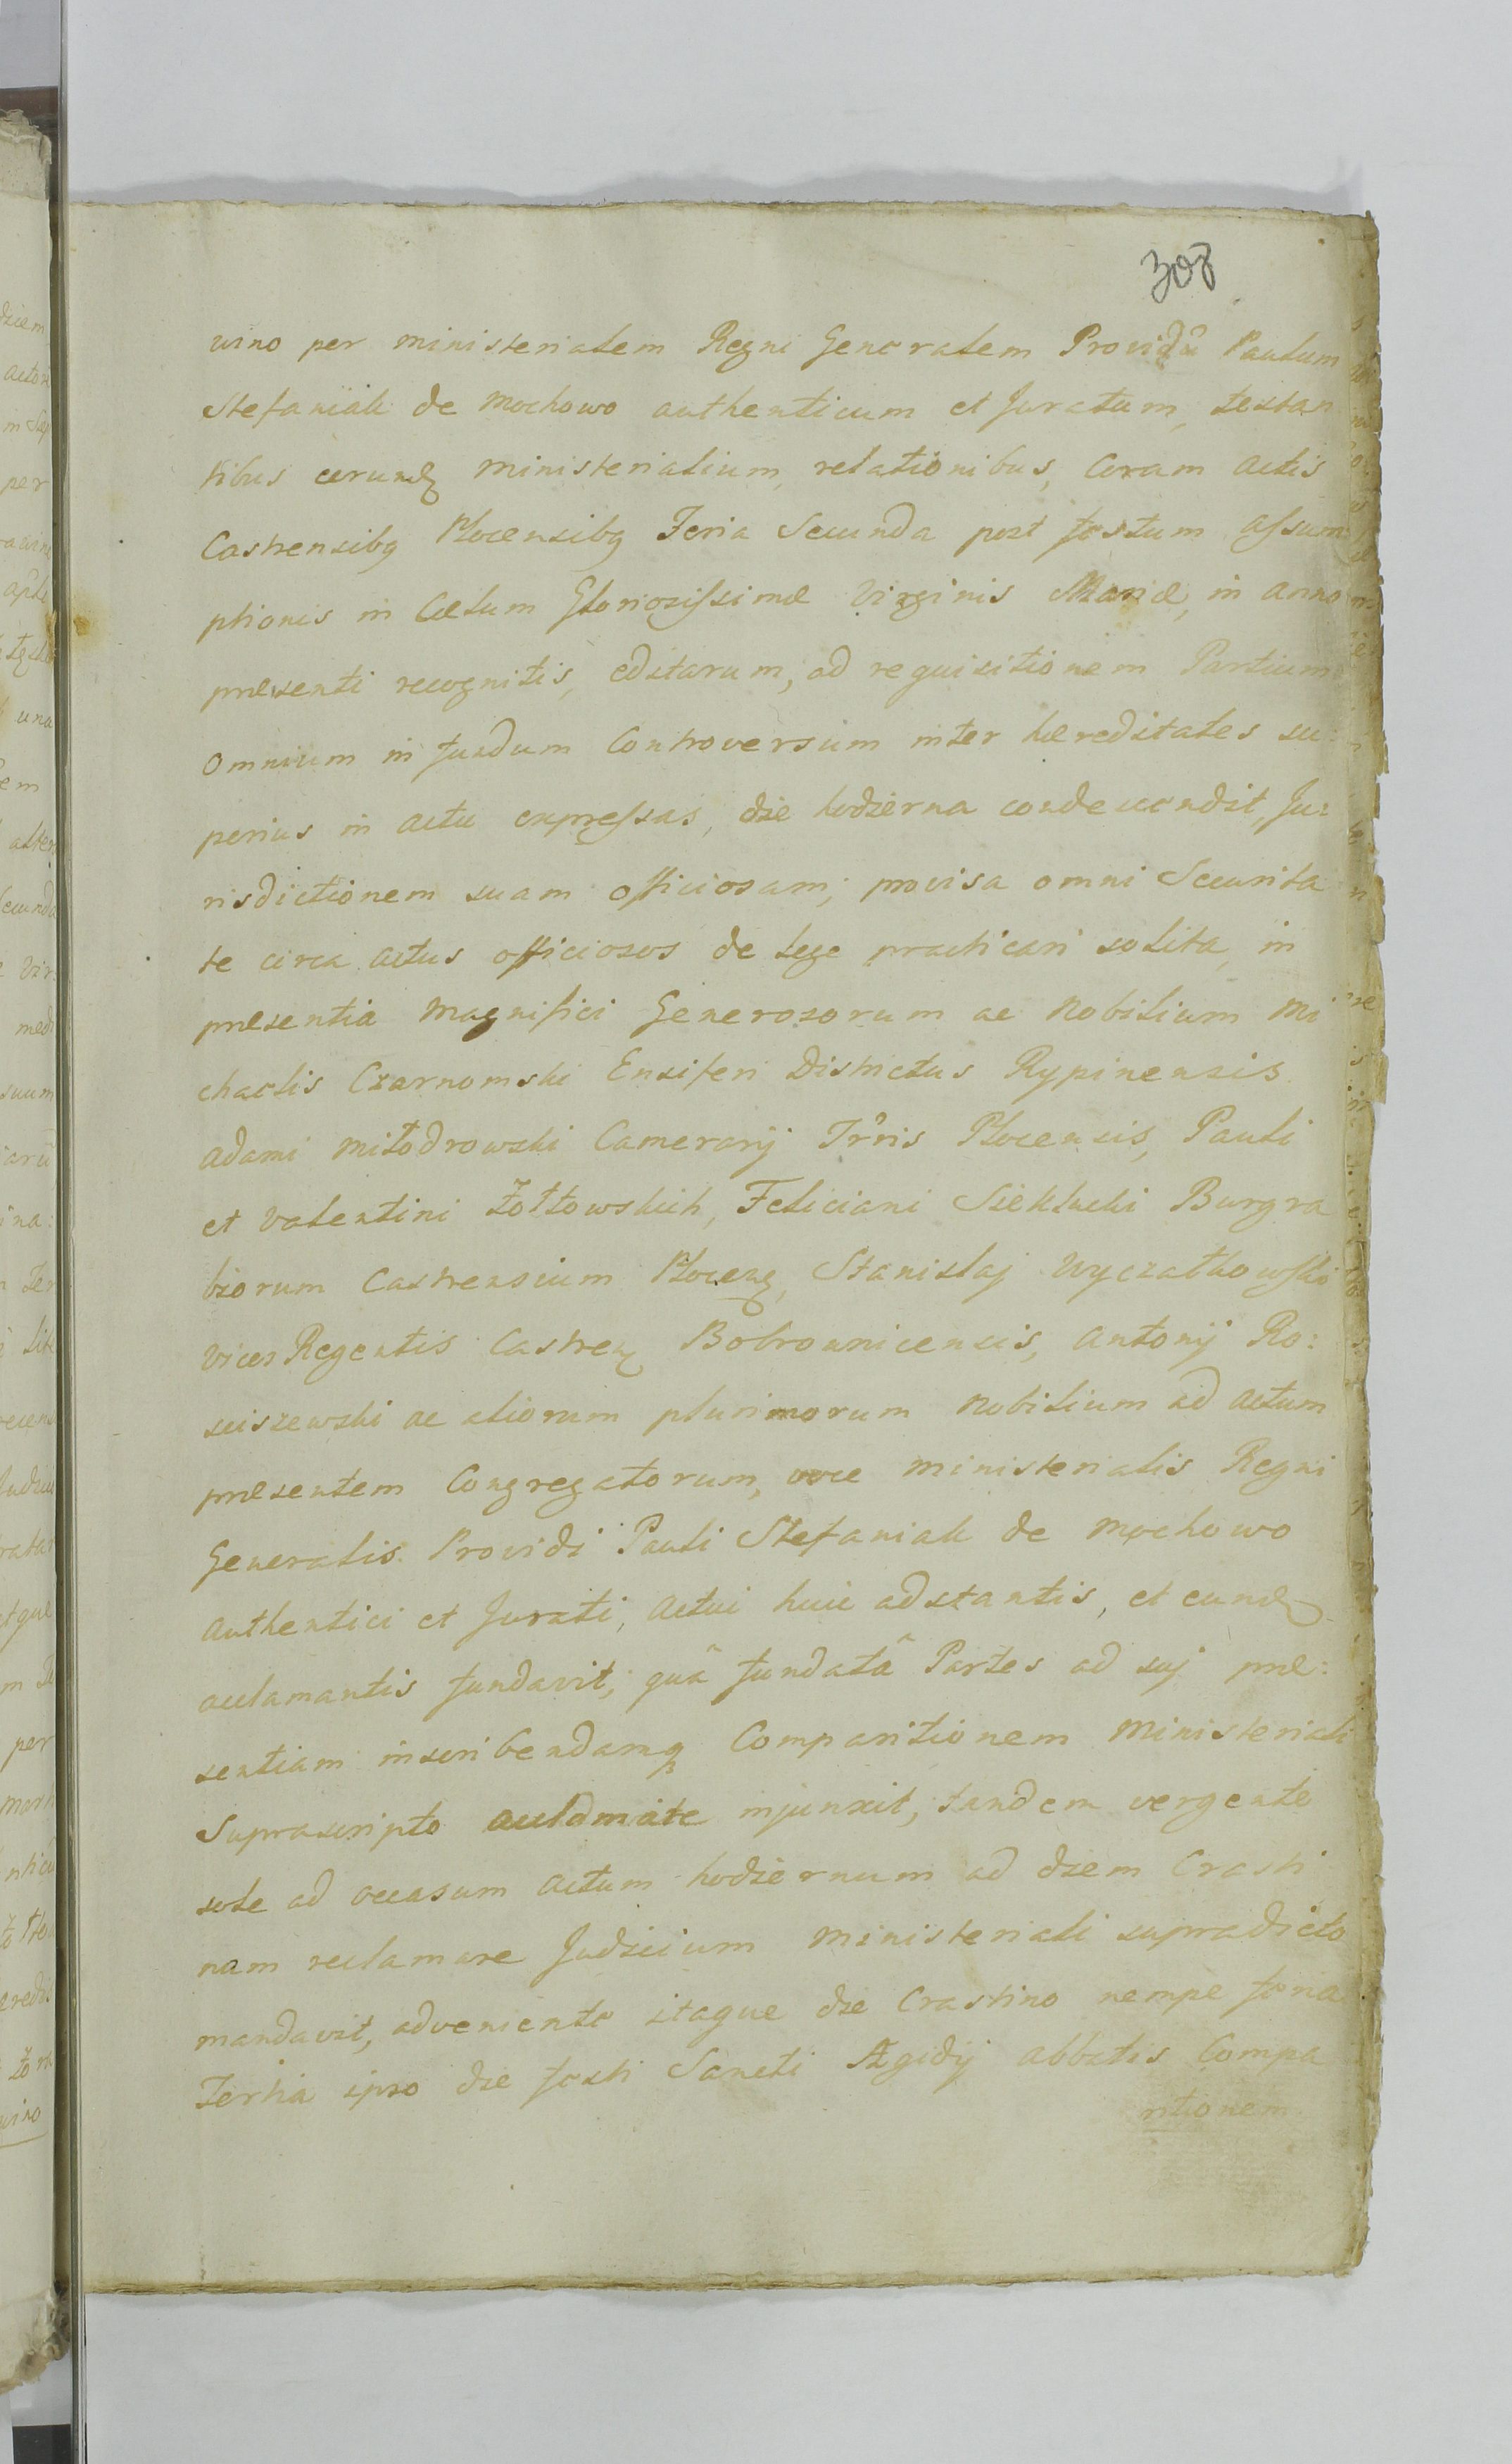 308
wino per ministerialem Regni Generalem Providũ Paulum
Stefaniak de Mochowo authenticum et Juratum, testan
tibus eorundę ministerialium, relationibus, Coram Actis
Castrensibq Plocensibq Feria Secunda post festum Assum
ptionis in Cælum Gloriosissimæ Virginis Mariæ, in Anno
præsenti recognitis, editarum, ad requisitionem Partium
Omnium in fundum Controversum inter hæreditates su:
perius in actu expressas, die hodierna condescendit, Ju:
risdictionem suam officiosam, provisa omni Securita
te circa actus officiosos de lege practicari solita, in
præsentia Magnifici Generosorum ac Nobilium Mi
chaelis Czarnomski Ensiferi Districtus Rypinensis
Adami Miłodrowski Camerarij Trris Plocensis, Pauli
et Valentini Żołtowskich, Feliciani Sieklucki Burgra
biorum Castrensium Plocenę, Stanislaj Wyczałkowski
Vices Regentis Castrenę Bobrownicensis, Antonij Ro:
sciszewski ac aliorum plurimorum Nobilium ad Actum
præsentem Congregatorum, voce Ministerialis Regni
Generalis Providi Pauli Stefaniak de Mochowo
Authentici et Jurati, Actui huic adstantis, et eundę
acclamantis fundavit, quâ fundatâ Partes ad suj præ:
sentiam inscribendamq Comparitionem Ministeriali
Suprascripto acclamate injunxit, tandem vergente
sole ad occasum Actum hodiernum ad diem Crasti
nam reclamare Judicium Ministeriali supradicto
mandavit, adveniente itaque die Crastino nempe feria
Tertia ipso die festi Sancti Ægidij Abbatis Compa
ritionem